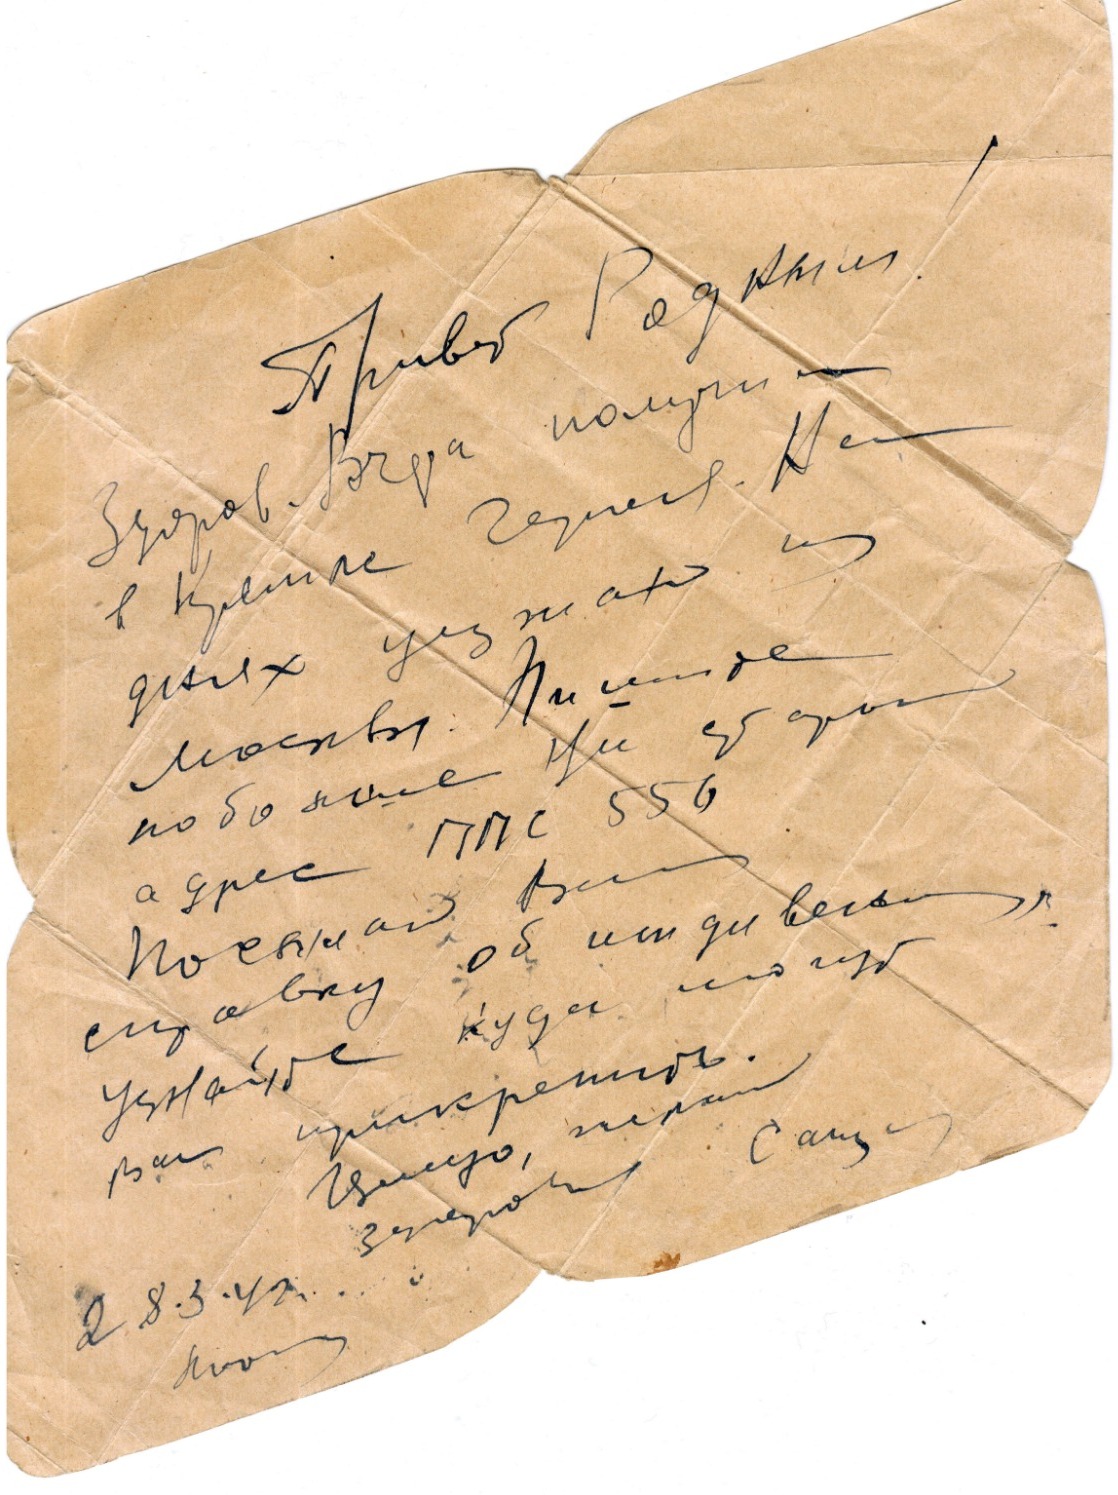 Привет Родным!
Здоров. Вчера получил
в Кремле Героя. На
днях уезжаю из
Москвы. Пишите
побольше на старый
адрес ППС 556
Посылаю Вам
справку об иждивен
Узнайте куда могут
вас прикрепить.
Целую, желаю
здоровья Саша
28.3.42г.